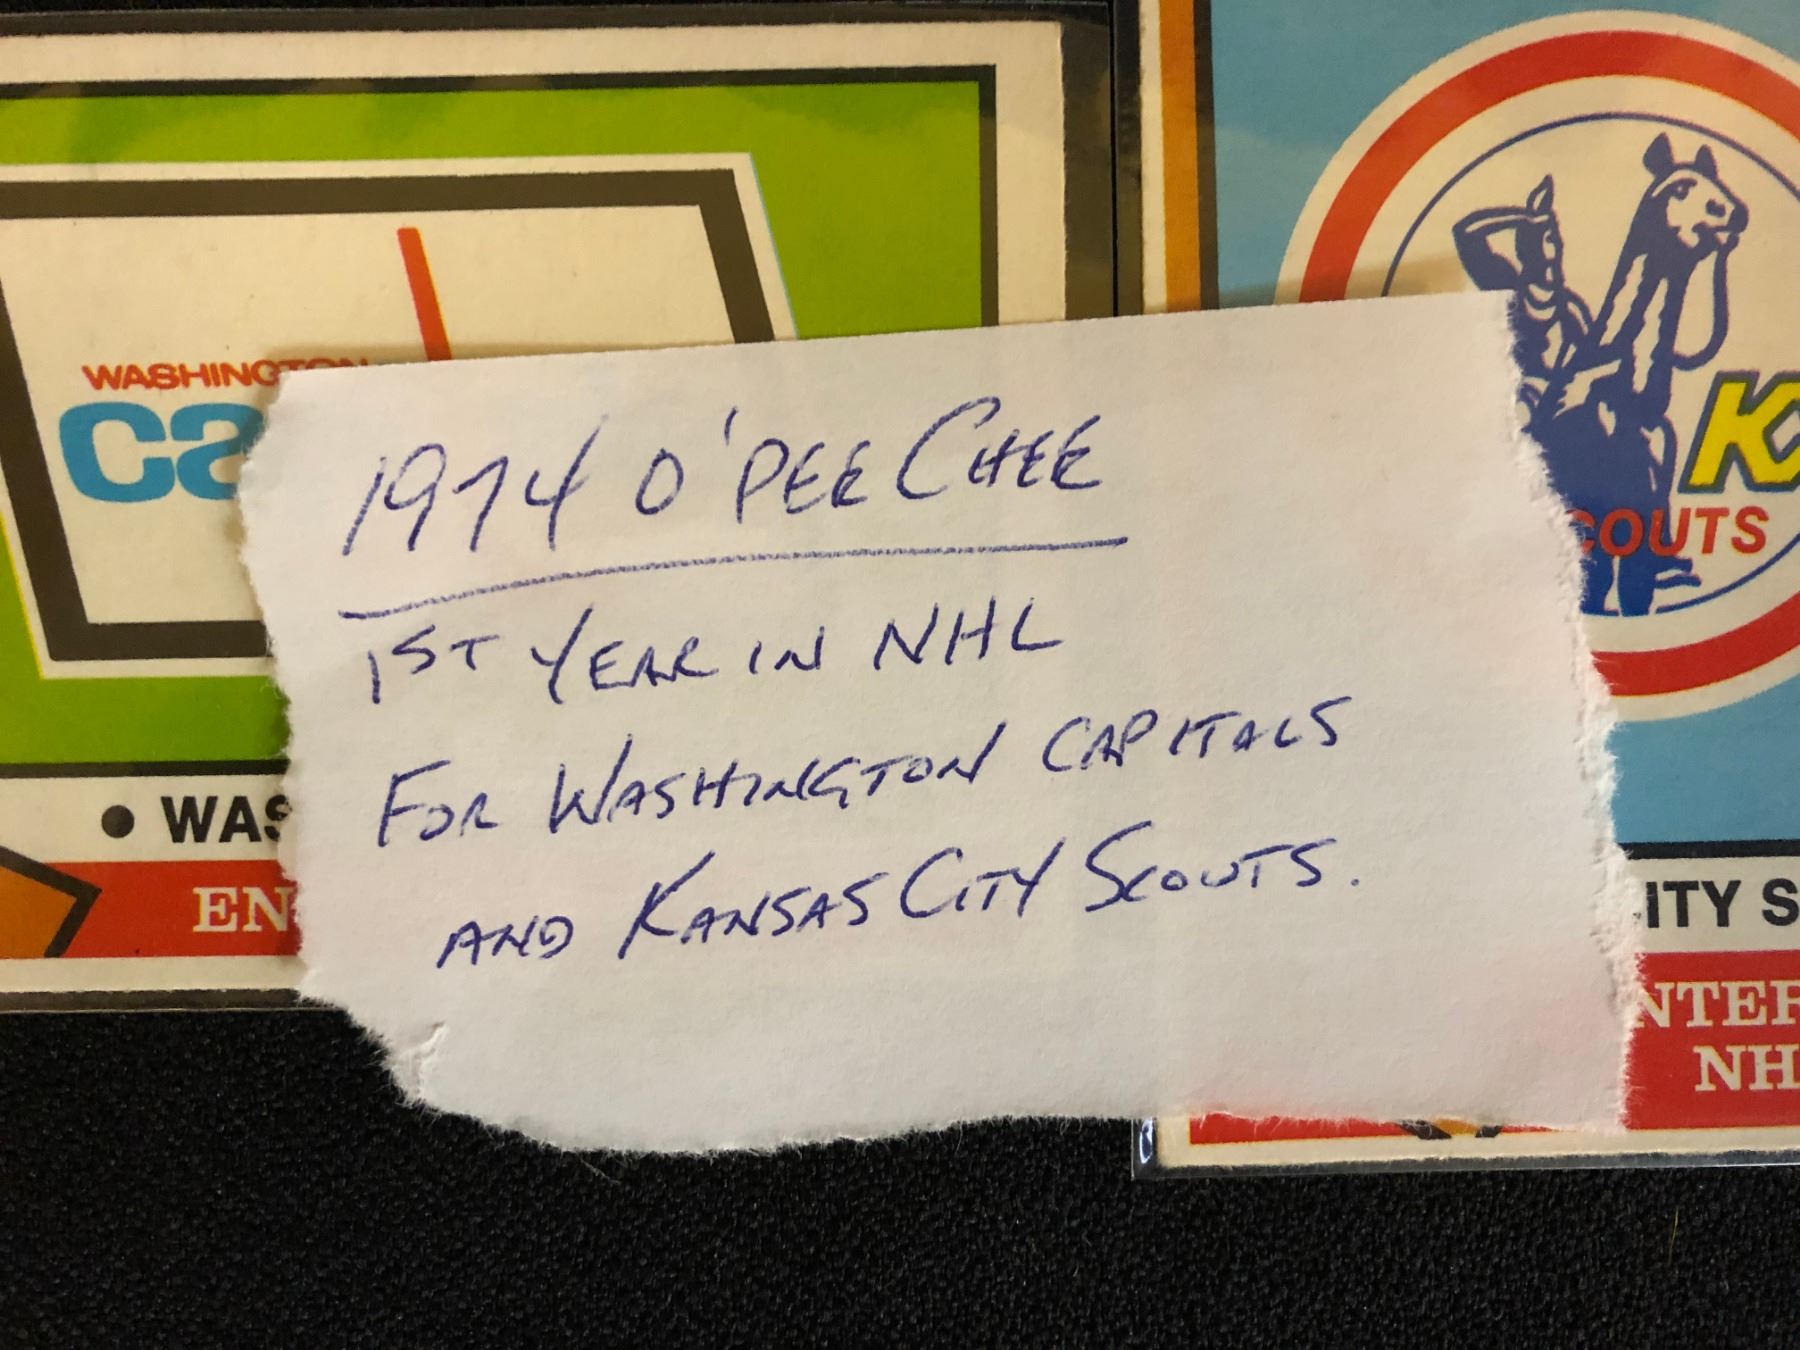 WASHINGTON
ca
● WAS
EN
1974 O'PEE CHEE
1ST YEAR IN NHL
FOR WASHINGTON CAPITALS
AND KANSAS CITY SCOUTS.
KC
SCOUTS
ITY S
NTER
NH